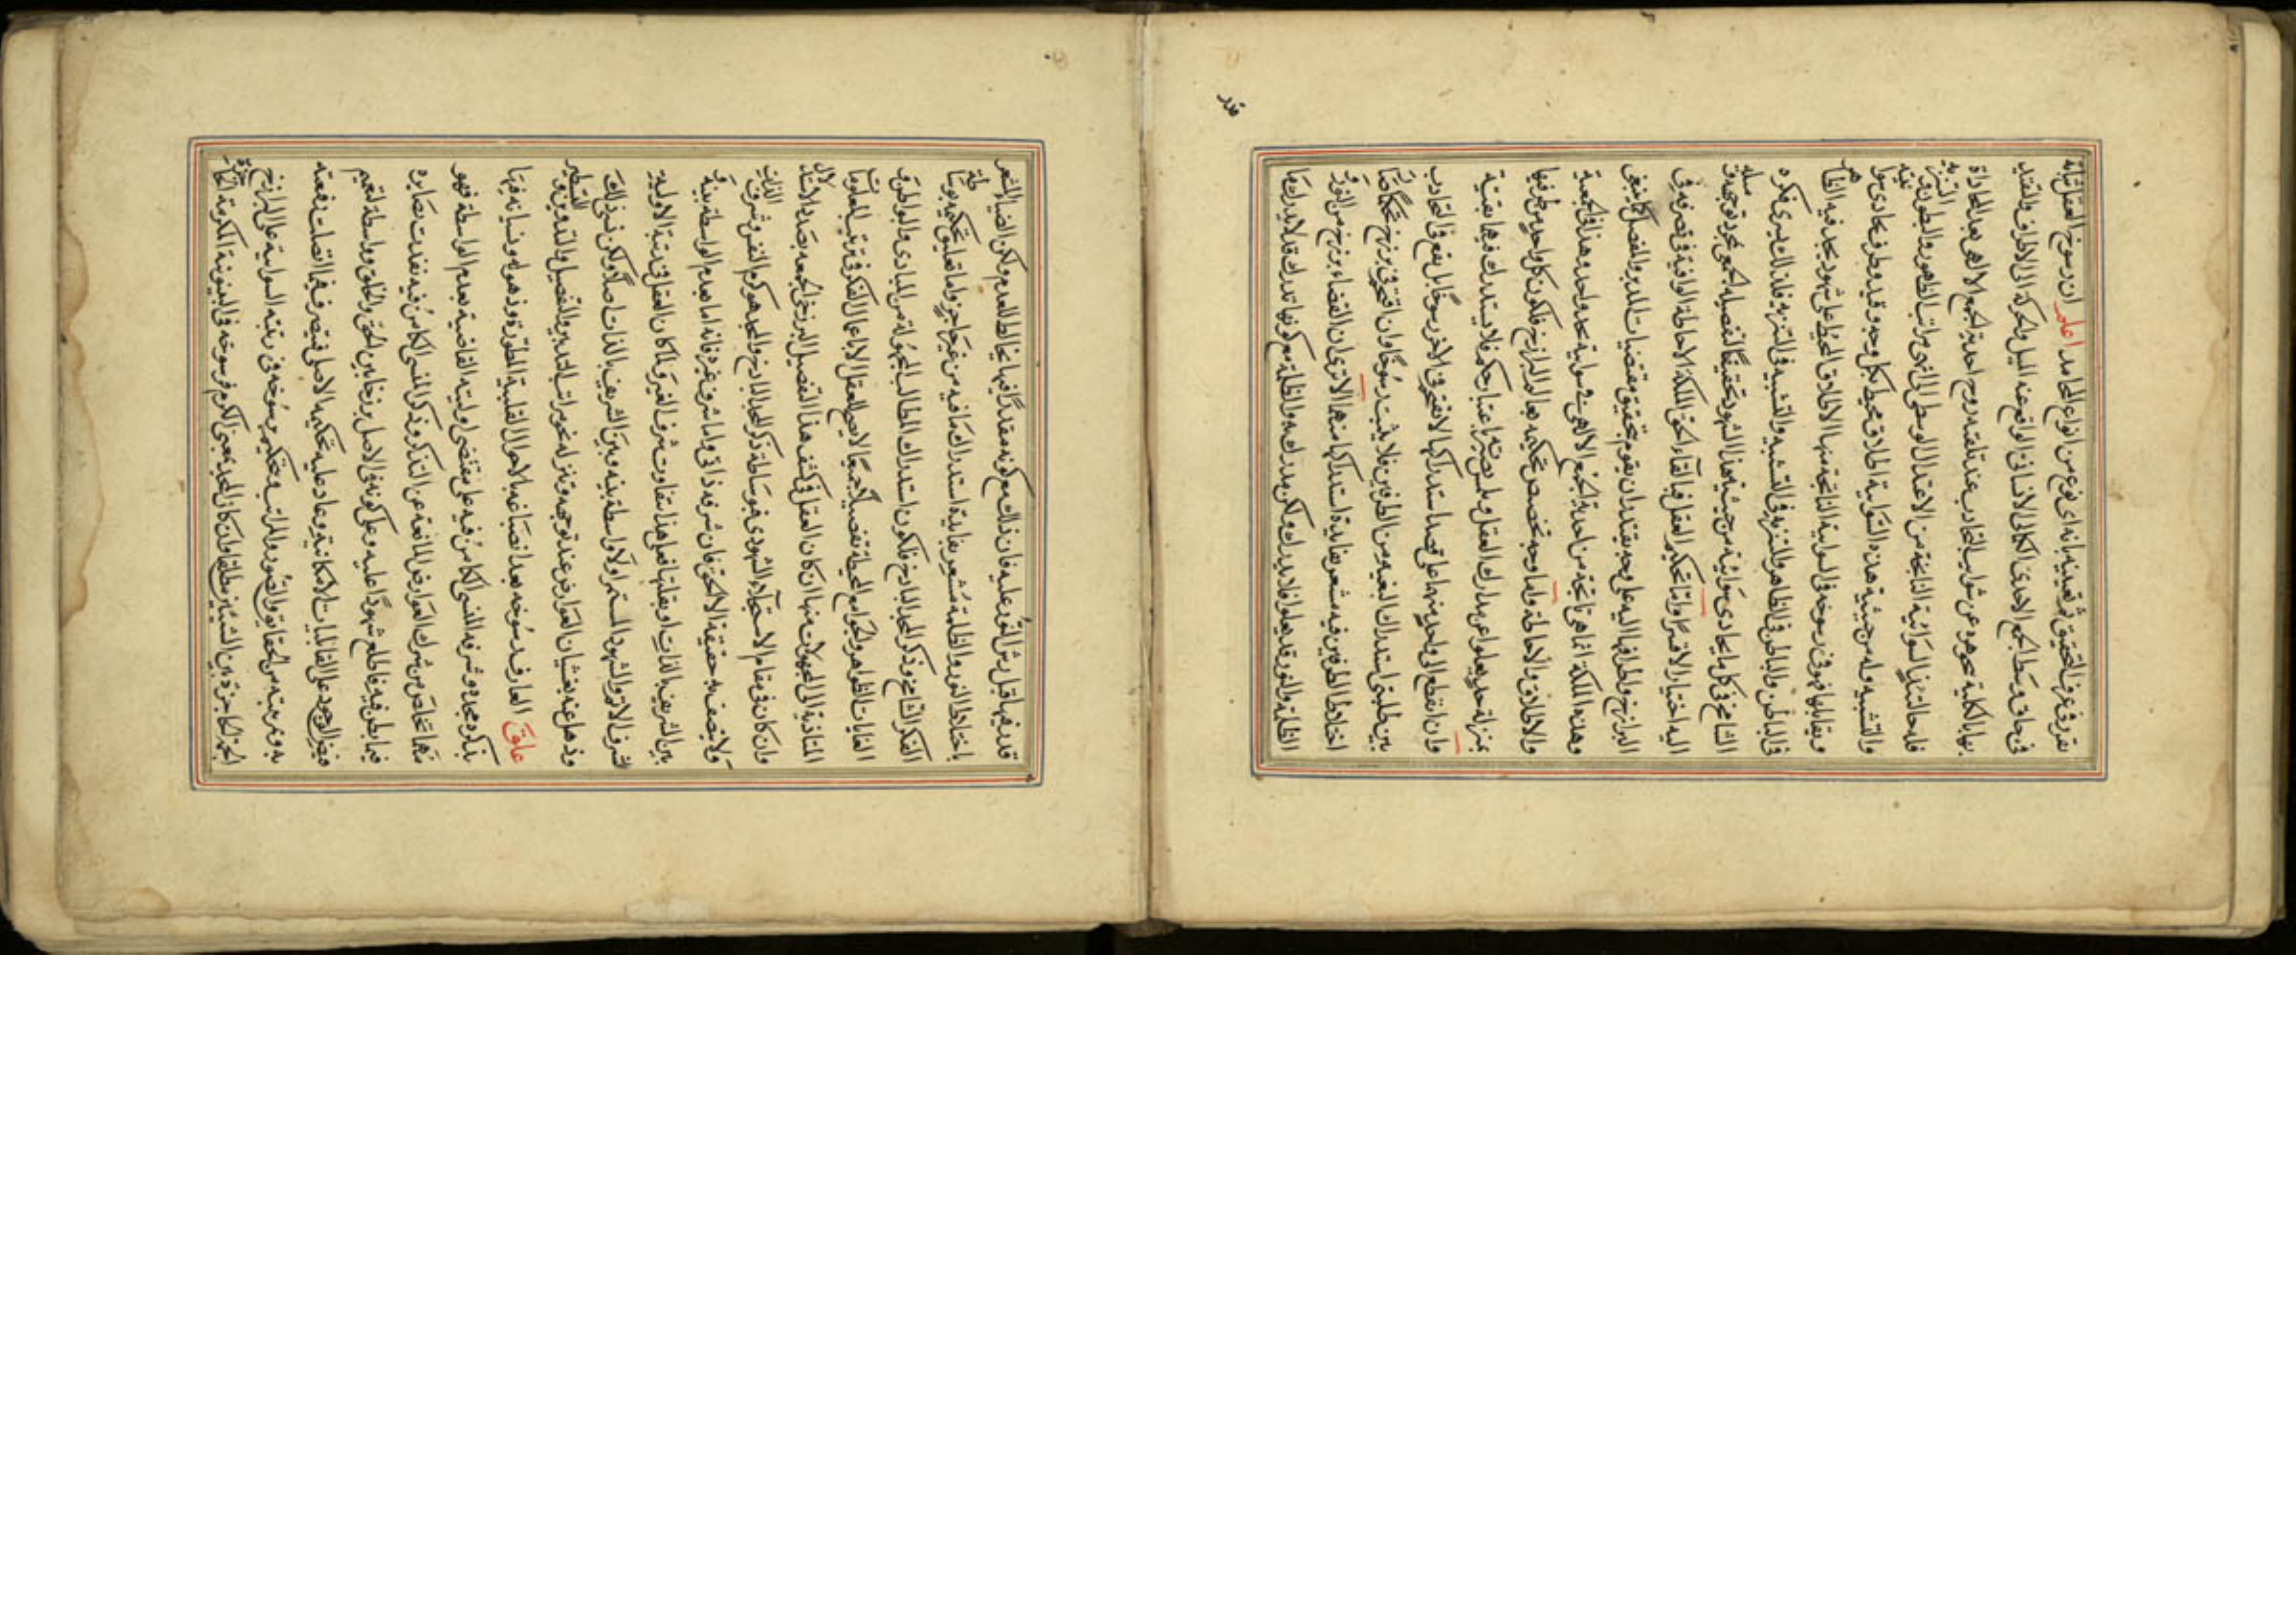 تعرف في عرف التحقيق ثم تعيينه باى نوع من انواع المحامد اعلم ان رسوخ العقل بانه
في حاق وسط الجمع الاحدى الكمالى الانسانى الواقع عنه الميل والحركة الى الاطراف والتقيد
بها بالكلية هو مجرد عن شوايب التجاذب عند تلقيه روح احدية الجمع الالهى بعد المحاذاة
فله حالتئذ في السوائية الناتجة من الاعتدال الوسطى الى انهى مراتب الظهور والبطون التنزيه
والتشبيه وله من حيثية هذه السوائية اطلاق محيط بكل وجه وقيد وطرف يحاذى
ويقابلها فهو في رسوخه في السوائية الناتجة منها الاطلاق المحيط على شهود يجد فيه الظاهر
في الباطن والباطن في الظاهر والتنزيه في التشبيه والتشبيه في التنزيه فلذلك يسرى فكره
الشامخ في كل ما يحاذى سوائيته من حيثية هذا الشهود تحقيقا لتفصيله الجمعى بمجرد توجهه وميله
اليه اختيارا لا قسرا واما تحكيم العقل فبالقاء الحق الملكة الاحاطة الوافية في تصرفه في
البرازخ واطرافها اليه على وجه يقتدر ان يقوم بتحقيق مقتضيات المدبر والمفصل كما ينبغى
وهذه الملكة انما هى ناتجة من احدية الجمع الالهى في سوائية وهذا في الجمعية
والاطلاق والاحاطة واما وجه تخصيص تحكيمه بها البرازخ فلكون كل واحد من طرفيها
بمنزلة حد يعلوا عن مدارك العقل وبصيرته باعتبار حكمه فلا يستدرك فيها بقيته
وان انقطع الى واحد منهما على قصد استدراكها لا نفتح في الاخر رسوخا بل يقع في التجاذب
بين طلبتى استدراك البغية من الطرفين فلا يثبت رسوخا وان افتتح في برزخ تحكما صار
اختلاط الطرفين فيه مشعر بفايدة استدراكها منهما الا ترى ان الفضاء برزخ من النور و
الظلمة والنور قد يعلوا فلا يدرك ولكن يدرك به والظلمة مع كونها تدرك قد لا يدرك بها
قدر
قدر فيها قبل رش النور عليه فان ذلك مع كونه مقدرا فيها مخالط للعدم ولكن الضياء المشعر
باختلاط النور والظلمة مشعر بفايدة استدراك ما فيه من غير حاجز واما تعليق تحكيمه بوساطة
الفكر الشامخ وذكر المجد الباذخ فلكون استدراك المطالب المجهولة من المبادى والبواطن و
الغايات الظواهر والجوامع المحيطة تفصيلا وجمعا لا يصح للعقل الا باعمال الفكر في ترتيب المعلومات
المتادية الى المجهولات منها ان كان العقل في كشف هذا التفصيل البرزخى الجمعى بصدد الاستدلال
وان كان في مقام الاستجلاء الشهودى فبوساطة ذكر المجد الباذخ والمجد هو كرم النفس وشرف الذات
ولا يتصف به حقيقة الا الحق فان شرفه ذاتى واما شرف غيره فانه اما بعدم الواسطة بينه و
بين الشريف بالذات او بقلتها فعلى هذا يتفاوت شرف الغير ولما كان العقل في رتبة الاولية
اشرف الاثر والشهود المستمر اولا واسطة بينه وبين الشريف بالذات اصلا ولكن نسى ذلك
وذهل عنه بغشيان العوارض عند توجهه وتنزله نحو مراتب التدبير والتفصيل والتدوين والتسطير
علق العارف رسوخه بعد انصباغه بالاحوال القلبية المطورة وذهوله ونسيانه فيها
بذكره مجده وشرفه المنسى الكامن فيه على مقتضى اوليته القاضية بعدم الواسطة فهو
مهما تخلص من شرك العوارض المانعة عن التذكر وذكر المنسى الكامن فيه نفذت بصايره
فيما بطن فيه فاطلع شهودا عليه وعلى كونه في الاصل برزخا بين الحق والخلق وواسطة لتعميم
فيض الوجود على القابليات الامكانية وعاد عليه تحكيمه الاصلى فيتصرف فيما اتصلت رقيقته
به ومرتبته من الحقايق والصور والمراتب وتحكيم رسوخه في رقيته السوائية على البرازخ
الجمة الحاجزة بين الشيئين مطلقا وان كان المجد بمعنى الكرم فرسوخه في البينونية المكرمة